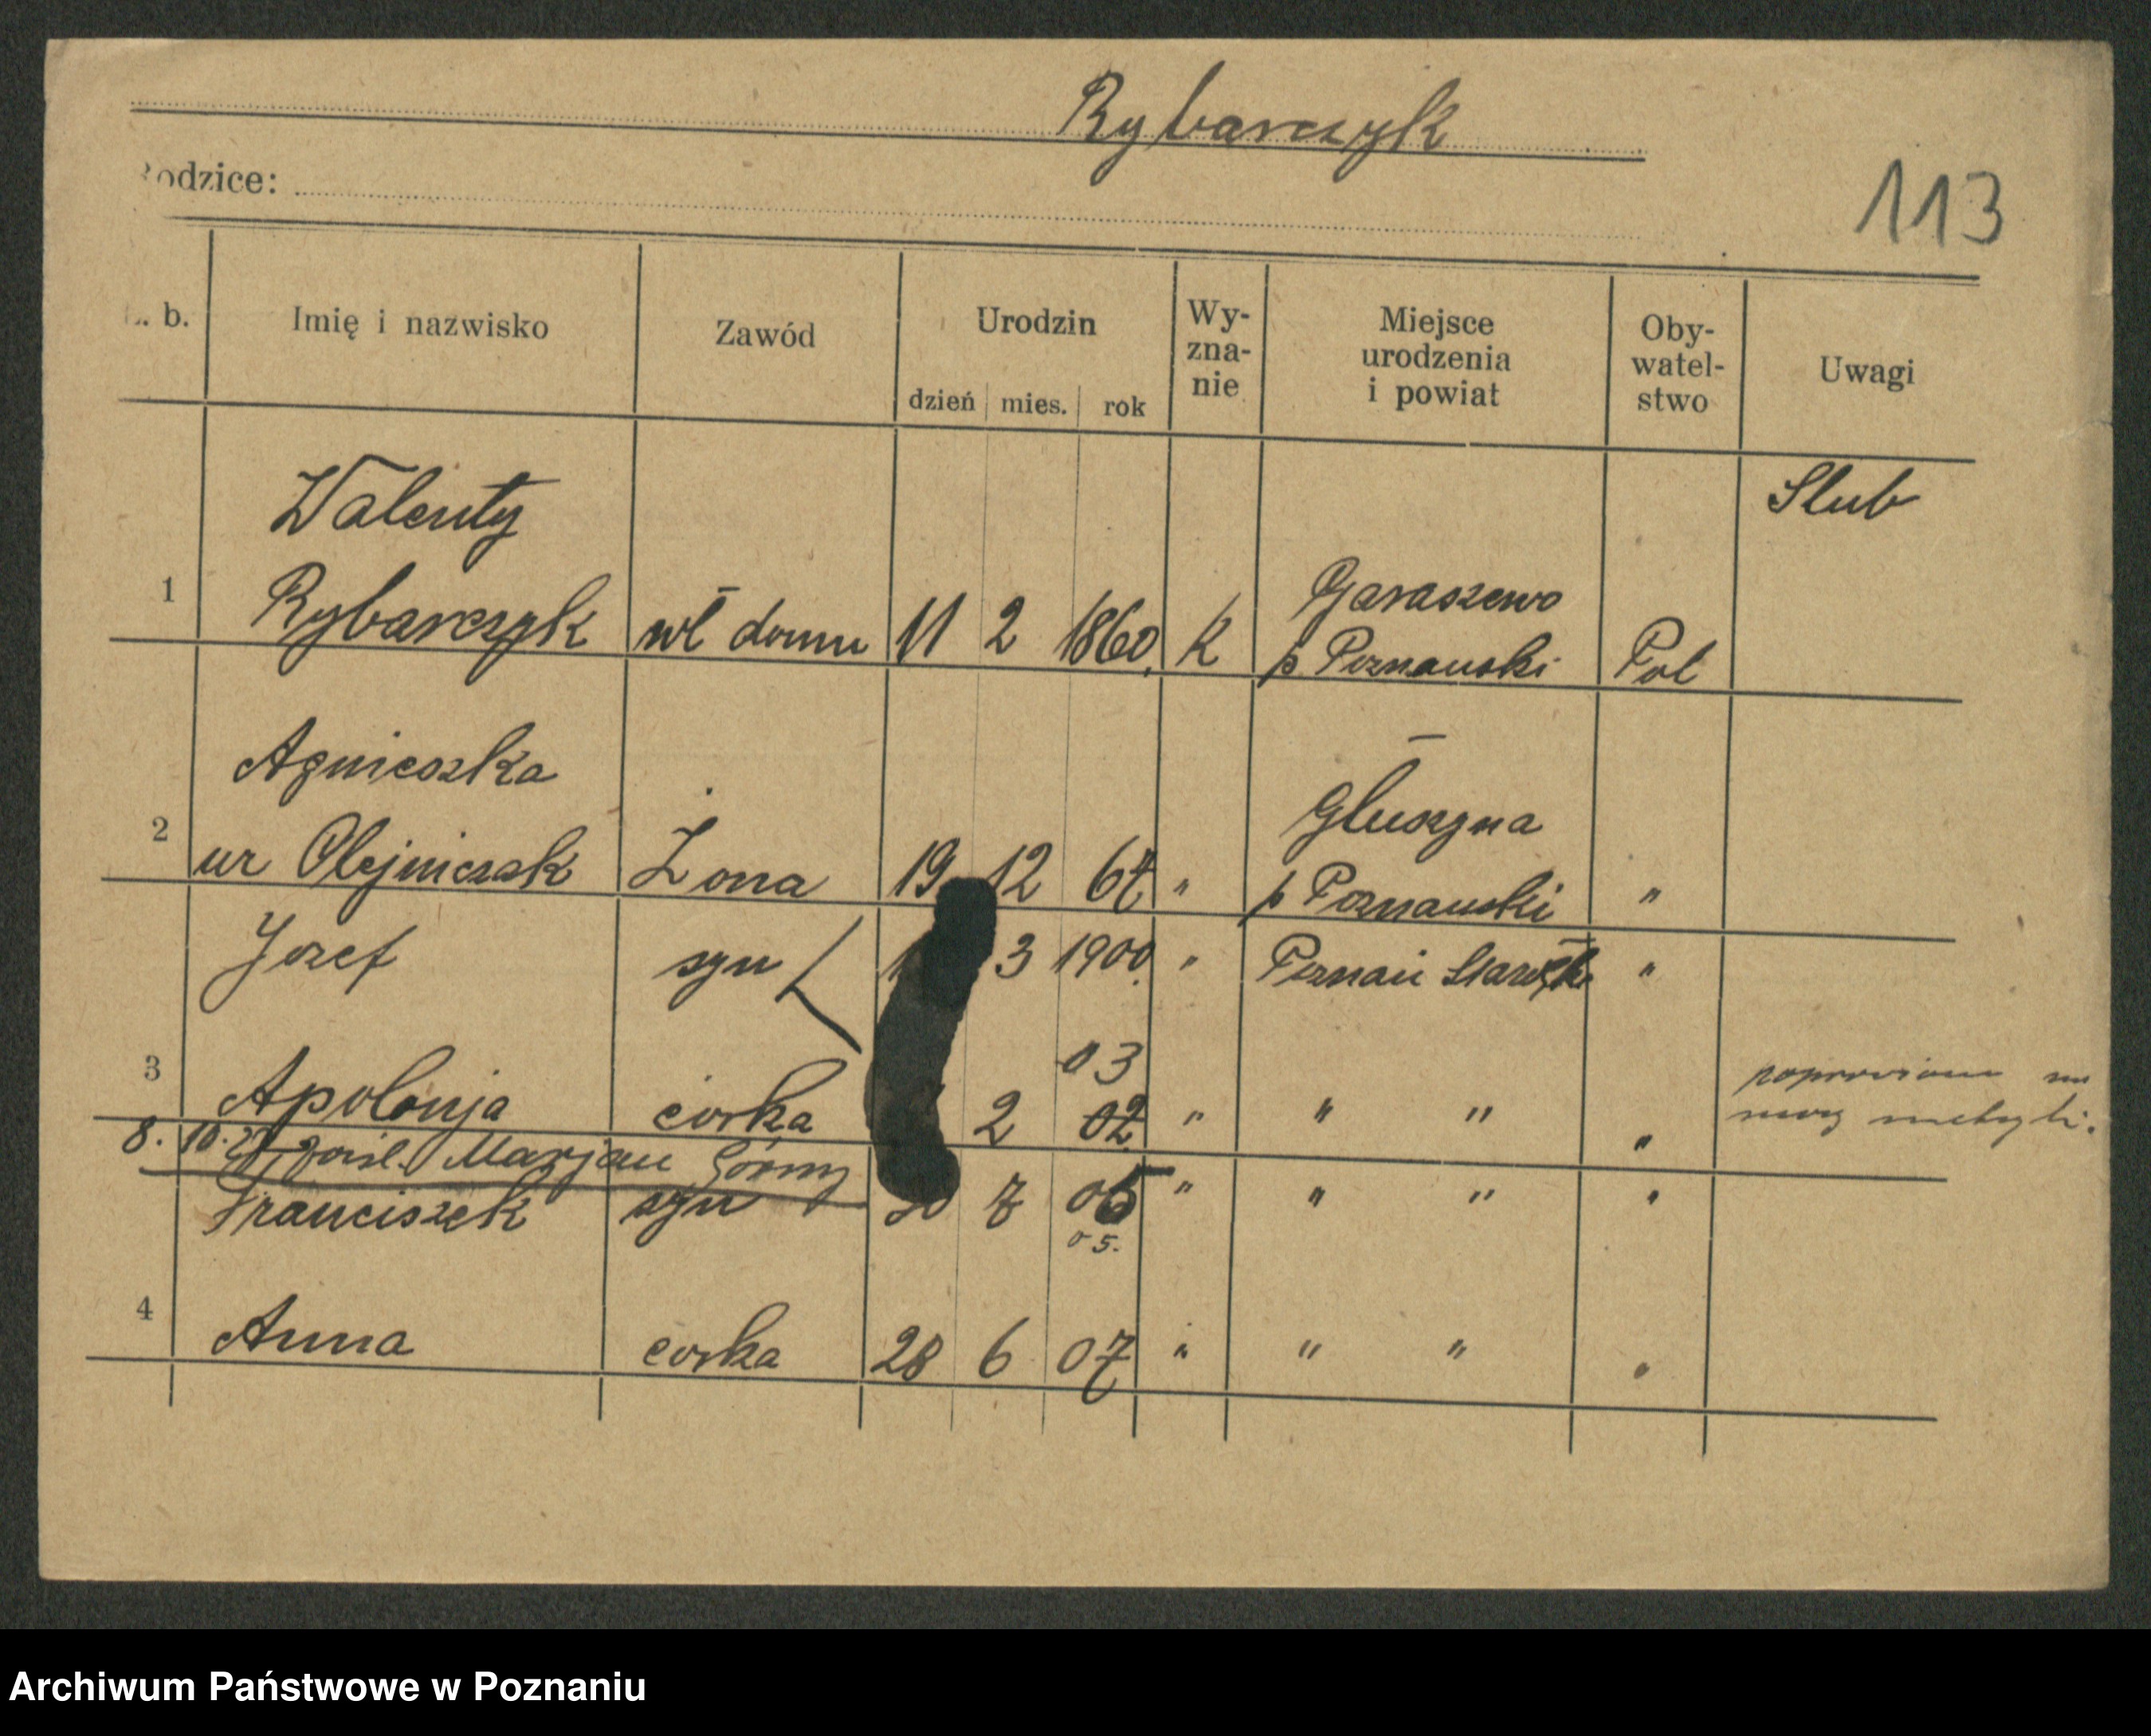 Rybarczyk
Rodzice:
113
L. b. Imię i nazwisko Zawód Urodzin dzień mies. rok Wy-zna-nie Miejsce urodzenia i powiat Oby-watel-stwo Uwagi
Walenty Slub
1 Rybarczyk wł domu 11 2 1860. K Garaszewo p Poznański Pol
Agnieszka
2 ur Olejniczak Żona 19 12 67 " Głuszyna p Poznański "
Jozef syn 3 1900. " Poznań "
03
3 Apolonja córka 2 02 " " " " poprawiono na mocy metryki.
8. 10. 27. zaśl. Marjan Górny
Franciszek syn 7 05 " " " "
05.
4 Anna corka 28 6 07 " " " "
Archiwum Państwowe w Poznaniu